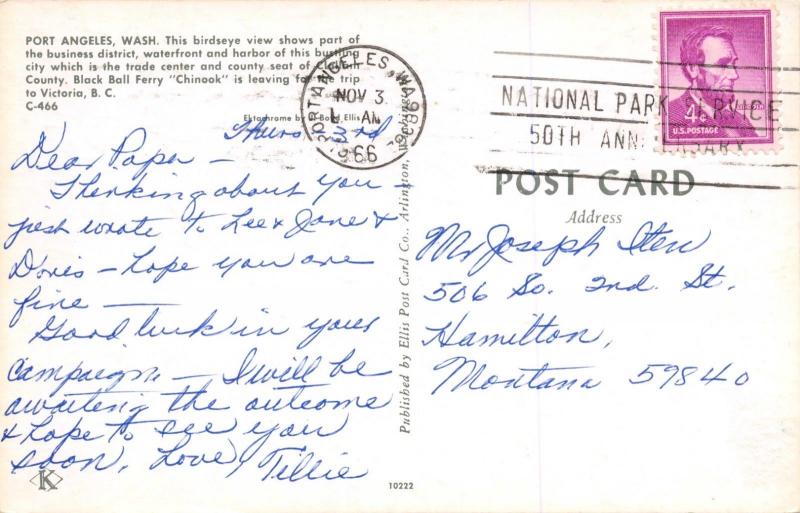 PORT ANGELES, WASH. This birdseye view shows part of
the business district, waterfront and harbor of this bustling
city which is the trade center and county seat of Clallam
County. Black Ball Ferry "Chinook" is leaving for the trip
to Victoria, B. C.
C-466
Ektachrome by Bob Ellis
PORT ANGELES, WA 98362
NOV 3
AM
1966
NATIONAL PARK SERVICE
50TH ANNIVERSARY
4¢
U.S. POSTAGE
Thurs. 3rd
Dear Papa —
Thinking about you —
just wrote to Lee & Jane &
Doris — hope you are
fine —
Good luck in your
campaign — I will be
awaiting the outcome
& hope to see you
soon, Love, Tillie
K
Published by Ellis Post Card Co., Arlington, Washington
10222
POST CARD
Address
Mr Joseph Iten
506 So. 2nd. St.
Hamilton,
Montana 59840